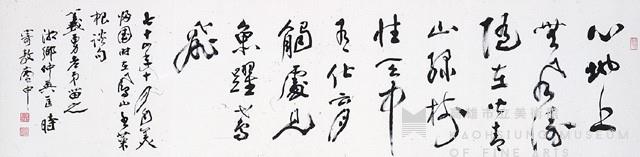 心地上
無風濤
隨在皆青
山綠樹
性天中
有化育
觸處見
魚躍鳶
飛
七十四年十月自美
歸國時 山書菜
根談句
義勇老弟留之
高雄市立美術館
KAOHSIUNG MUSEUM
OF FINE ARTS